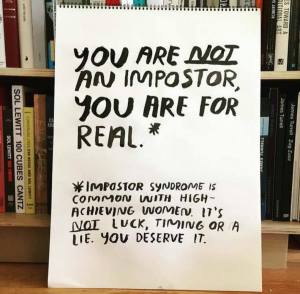 YOU ARE NOT
AN IMPOSTOR,
YOU ARE FOR
REAL.*
*IMPOSTOR SYNDROME IS
COMMON WITH HIGH-
ACHIEVING WOMEN. IT'S
NOT LUCK, TIMING OR A
LIE. YOU DESERVE IT.
SOL LEWITT 100 CUBES CANTZ
James Turrell